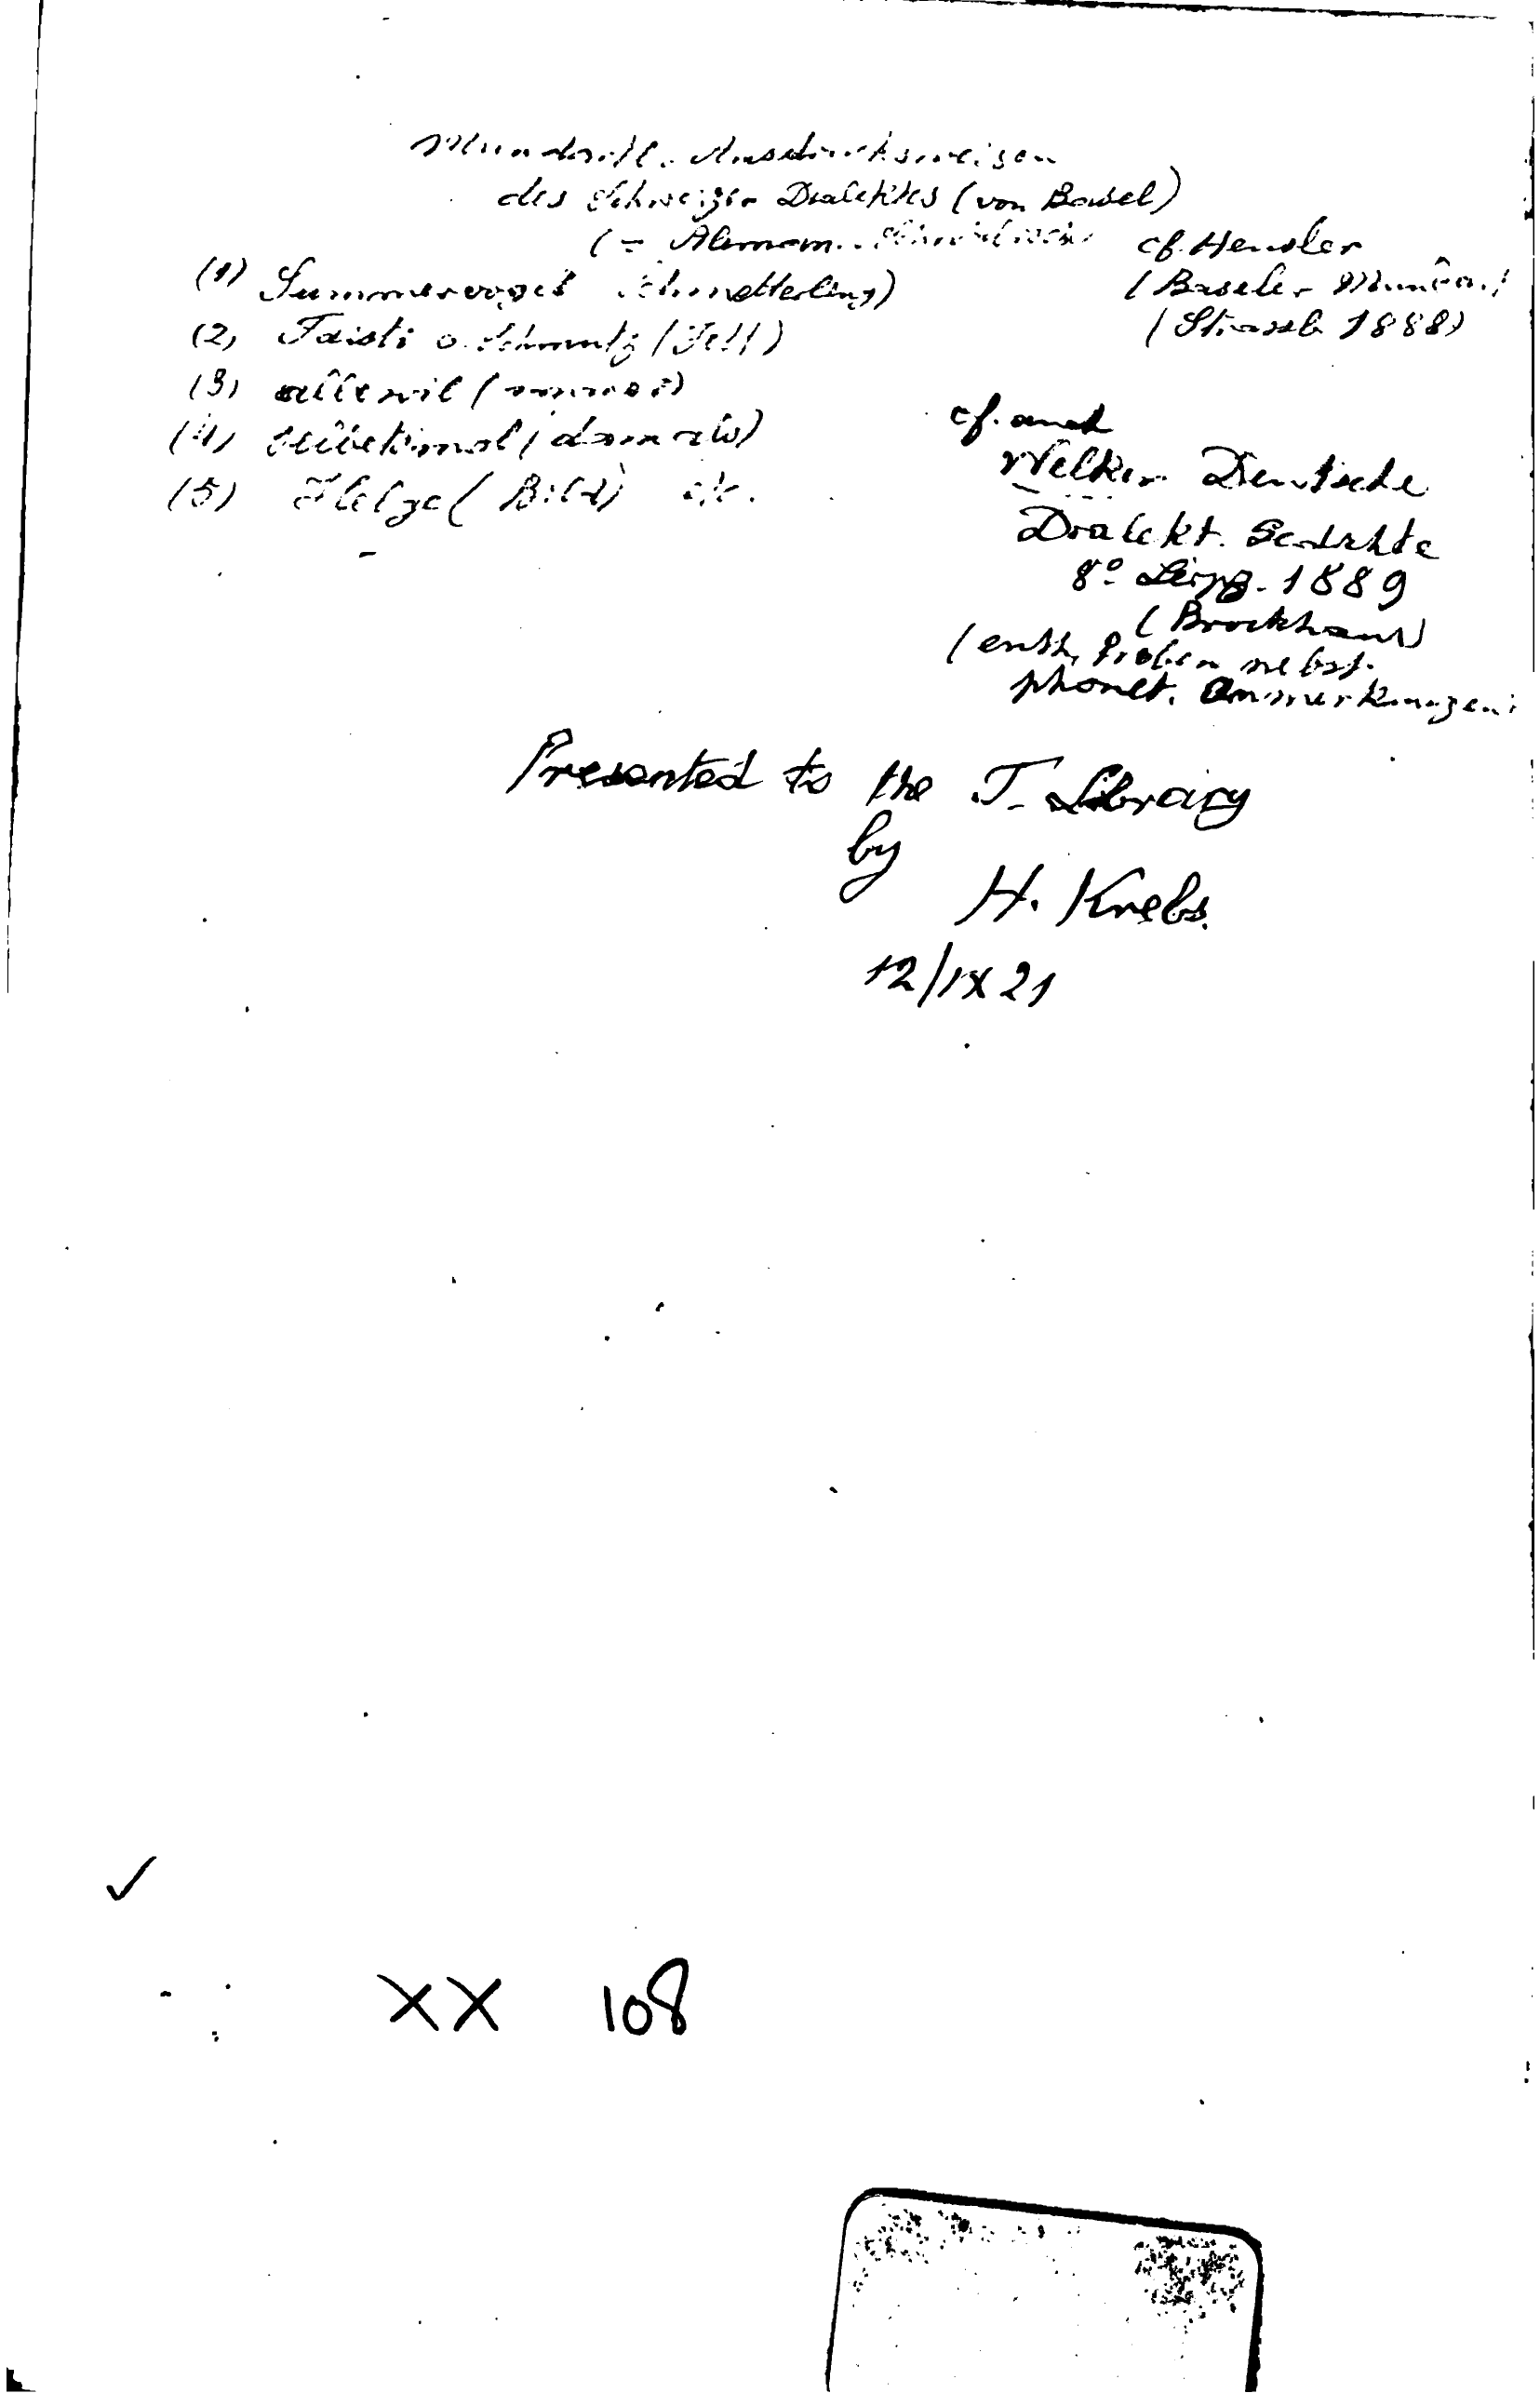 Mundartl. Ausdrucksweisen
des Schweizer Dialektes (von Basel)
(= Alemann.
(1) Summervogel Schmetterling)
(2) Faisti o. Schmutz (Fett)
(3) allewil (immer)
(4) (damals)
(5) Helge (Bild) etc.
cf. Heusler
(Baseler Mundart
(Strassb 1888)
cf. auch
Welker Deutsche
Dialekt. Gedichte
8º Leipz. 1889
(Brockhaus)
(enth. Proben nebst.
phonet. Anmerkungen)
Presented to the T. Library
by
H. Krebs.
12/IX 21
✓
XX 108